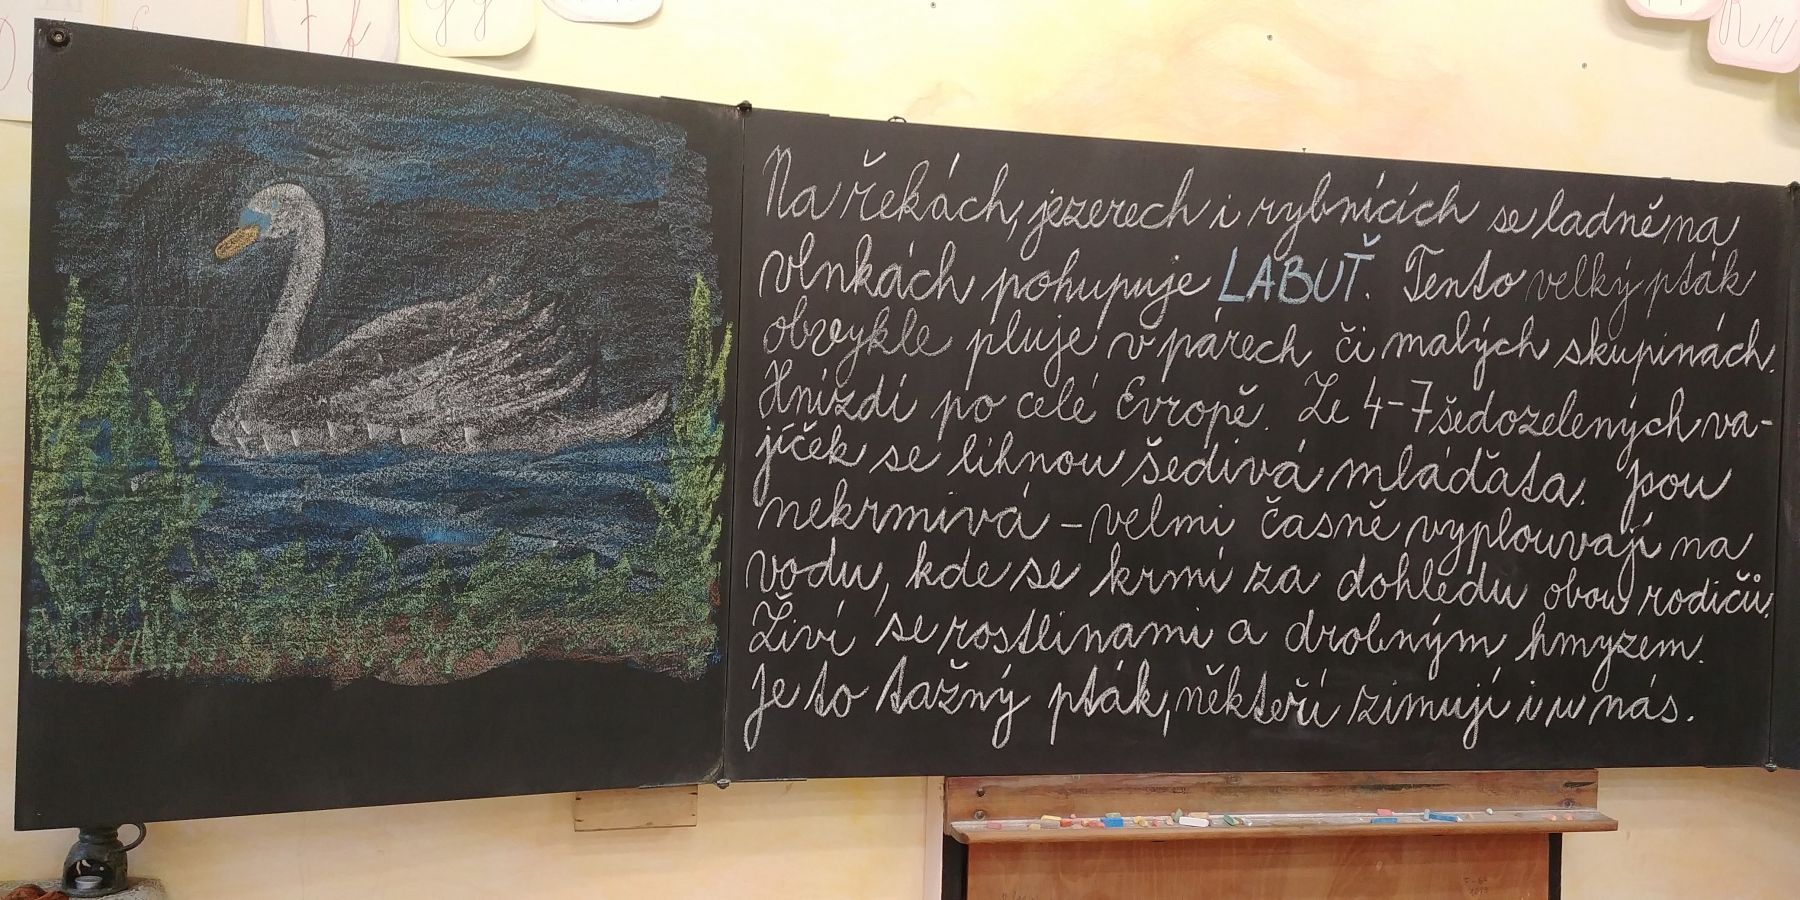 Na řekách, jezerech i rybnících se ladně na
vlnkách pohupuje LABUŤ. Tento velký pták
obvykle pluje v párech či malých skupinách.
Hnízdí po celé Evropě. Ze 4-7 šedozelených va-
jíček se líhnou šedivá mláďata. Jsou
nekrmivá – velmi časně vyplouvají na
vodu, kde se krmí za dohledu obou rodičů.
Živí se rostlinami a drobným hmyzem.
Je to tažný pták, někteří zimují i u nás.